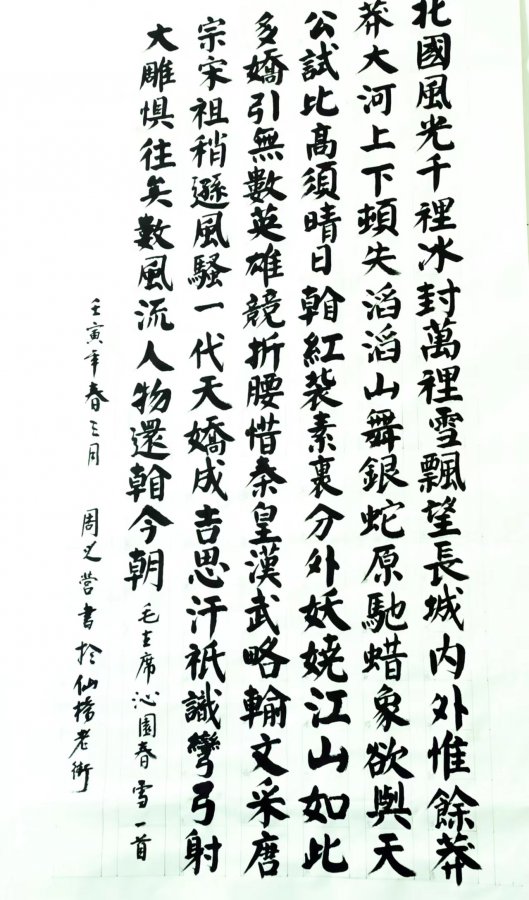 北國風光千裡冰封萬裡雪飄望長城内外惟餘莽
莽大河上下頓失滔滔山舞銀蛇原馳蜡象欲與天
公試比高須晴日看紅裝素裹分外妖嬈江山如此
多嬌引無數英雄競折腰惜秦皇漢武略輸文采唐
宗宋祖稍遜風騷一代天嬌成吉思汗祇識彎弓射
大雕惧往矣數風流人物還看今朝
毛主席沁園春雪一首
壬寅年春三月 周義營書於仙橋老街